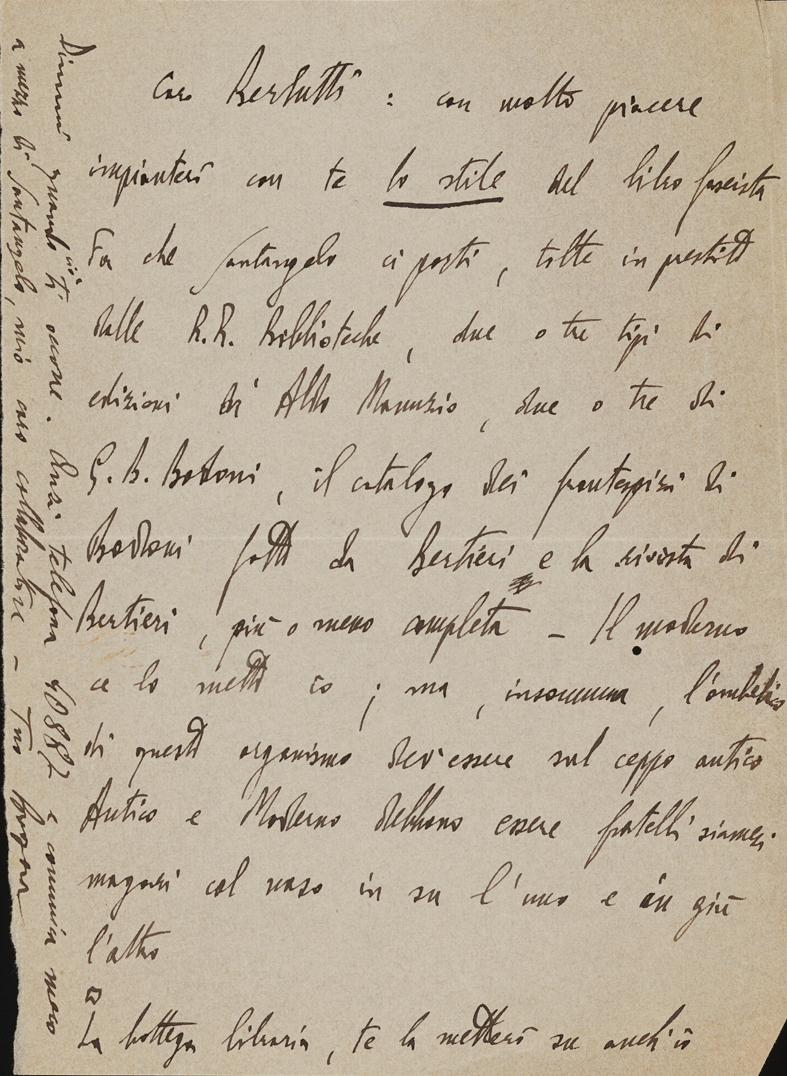 Caro Bertutti: con molto piacere
impianterò con te lo stile del libro fascista
Fa che Santangelo ci porti, tolte in prestito
dalle R.R. Biblioteche, due o tre tipi di
edizioni di Aldo Manuzio, due o tre di
G. B. Bodoni, il catalogo dei frontespizi di
Bodoni fatto da Bertieri e la rivista di
Bertieri, più o meno completa – Il moderno
ce lo metto io; ma, insomma, l'ombelico
di questo organismo dev'essere sul ceppo antico
Antico e Moderno debbono essere fratelli siamesi
magari col naso in su l'uno e in giù
l'altro
La bottega libraria, te la metterò su anch'io
Dimmi quando ciò ti occorre. Anzi telefona 40887 e comunica meco
a mezzo di Santangelo, mio caro collaboratore – Tuo